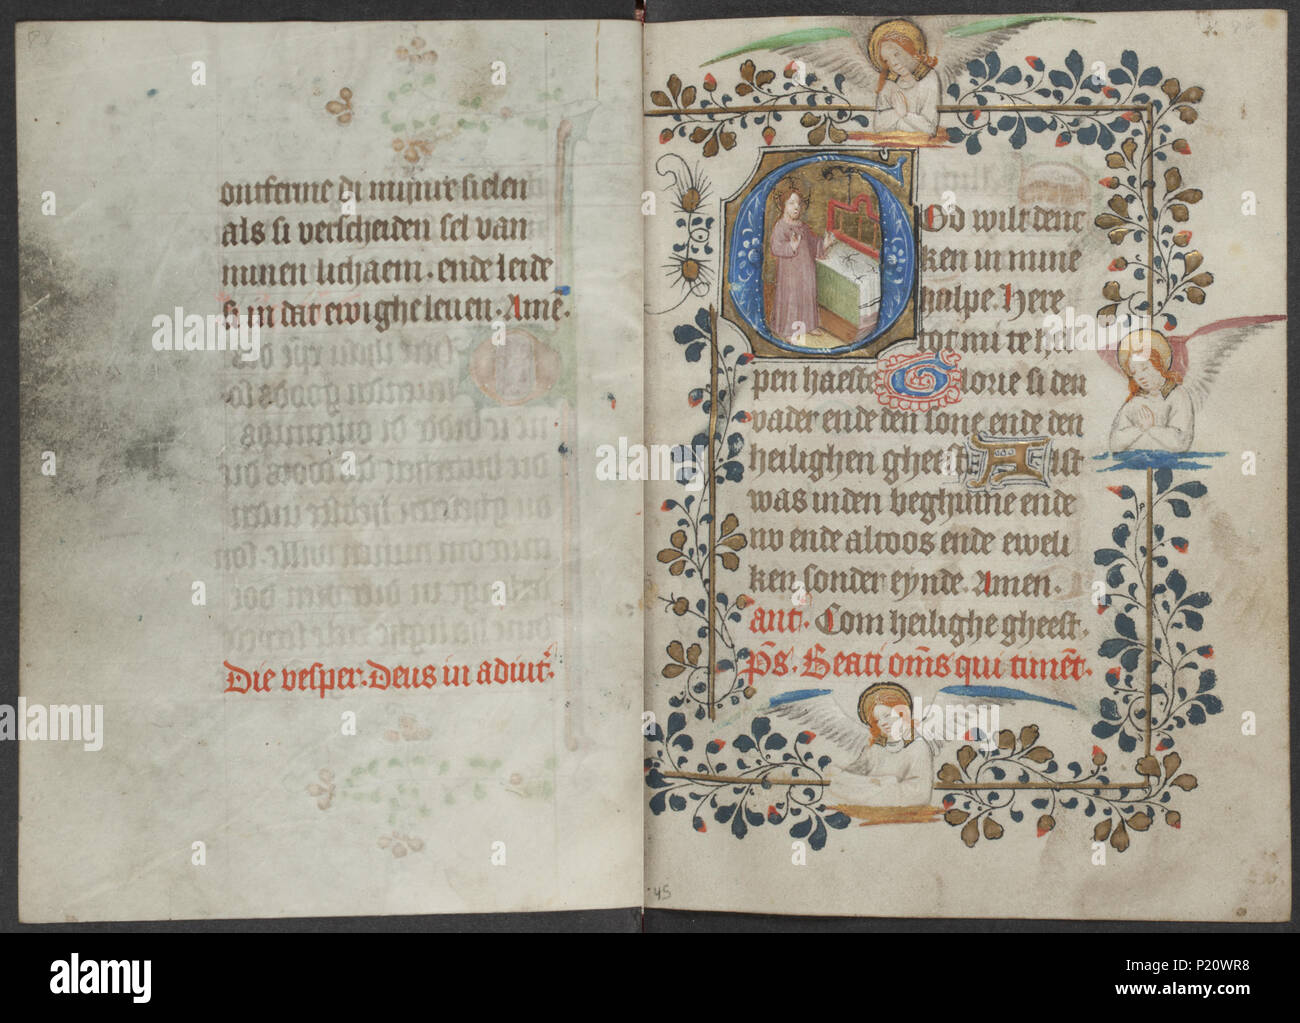 ontferme di minire sielen
als si verscheiden sel van
minen lichaem. ende leide
si in dat ewighe leuen. Amē.
Die vesper. Deus in adiut̄.
God wilt denc
ken in mine
hulpe. Here
tot mi te hel
pen haeste Glorie si den
vader ende den sone ende den
heilighen gheest Alst
was inden beghinne ende
nv ende altoos ende eweli
ken sonder eynde. Amen.
ant. Com heilighe gheest.
p̄s. Beati om̄s qui timēt.
45
alamy
Image ID: P20WR8
www.alamy.com